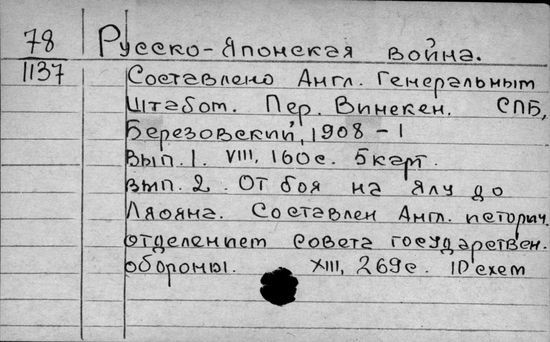 78 Русско-Японская война.
1137 Составлено Англ. Генеральным
Штабом. Пер. Винекен. СПБ,
Березовский, 1908 - 1
Вып. 1. VIII, 160с. 5 карт.
Вып. 2. От боя на Ялу до
Ляояна. Составлен Англ. историч.
отделением Совета государствен.
обороны. XIII, 269с. 10 схем